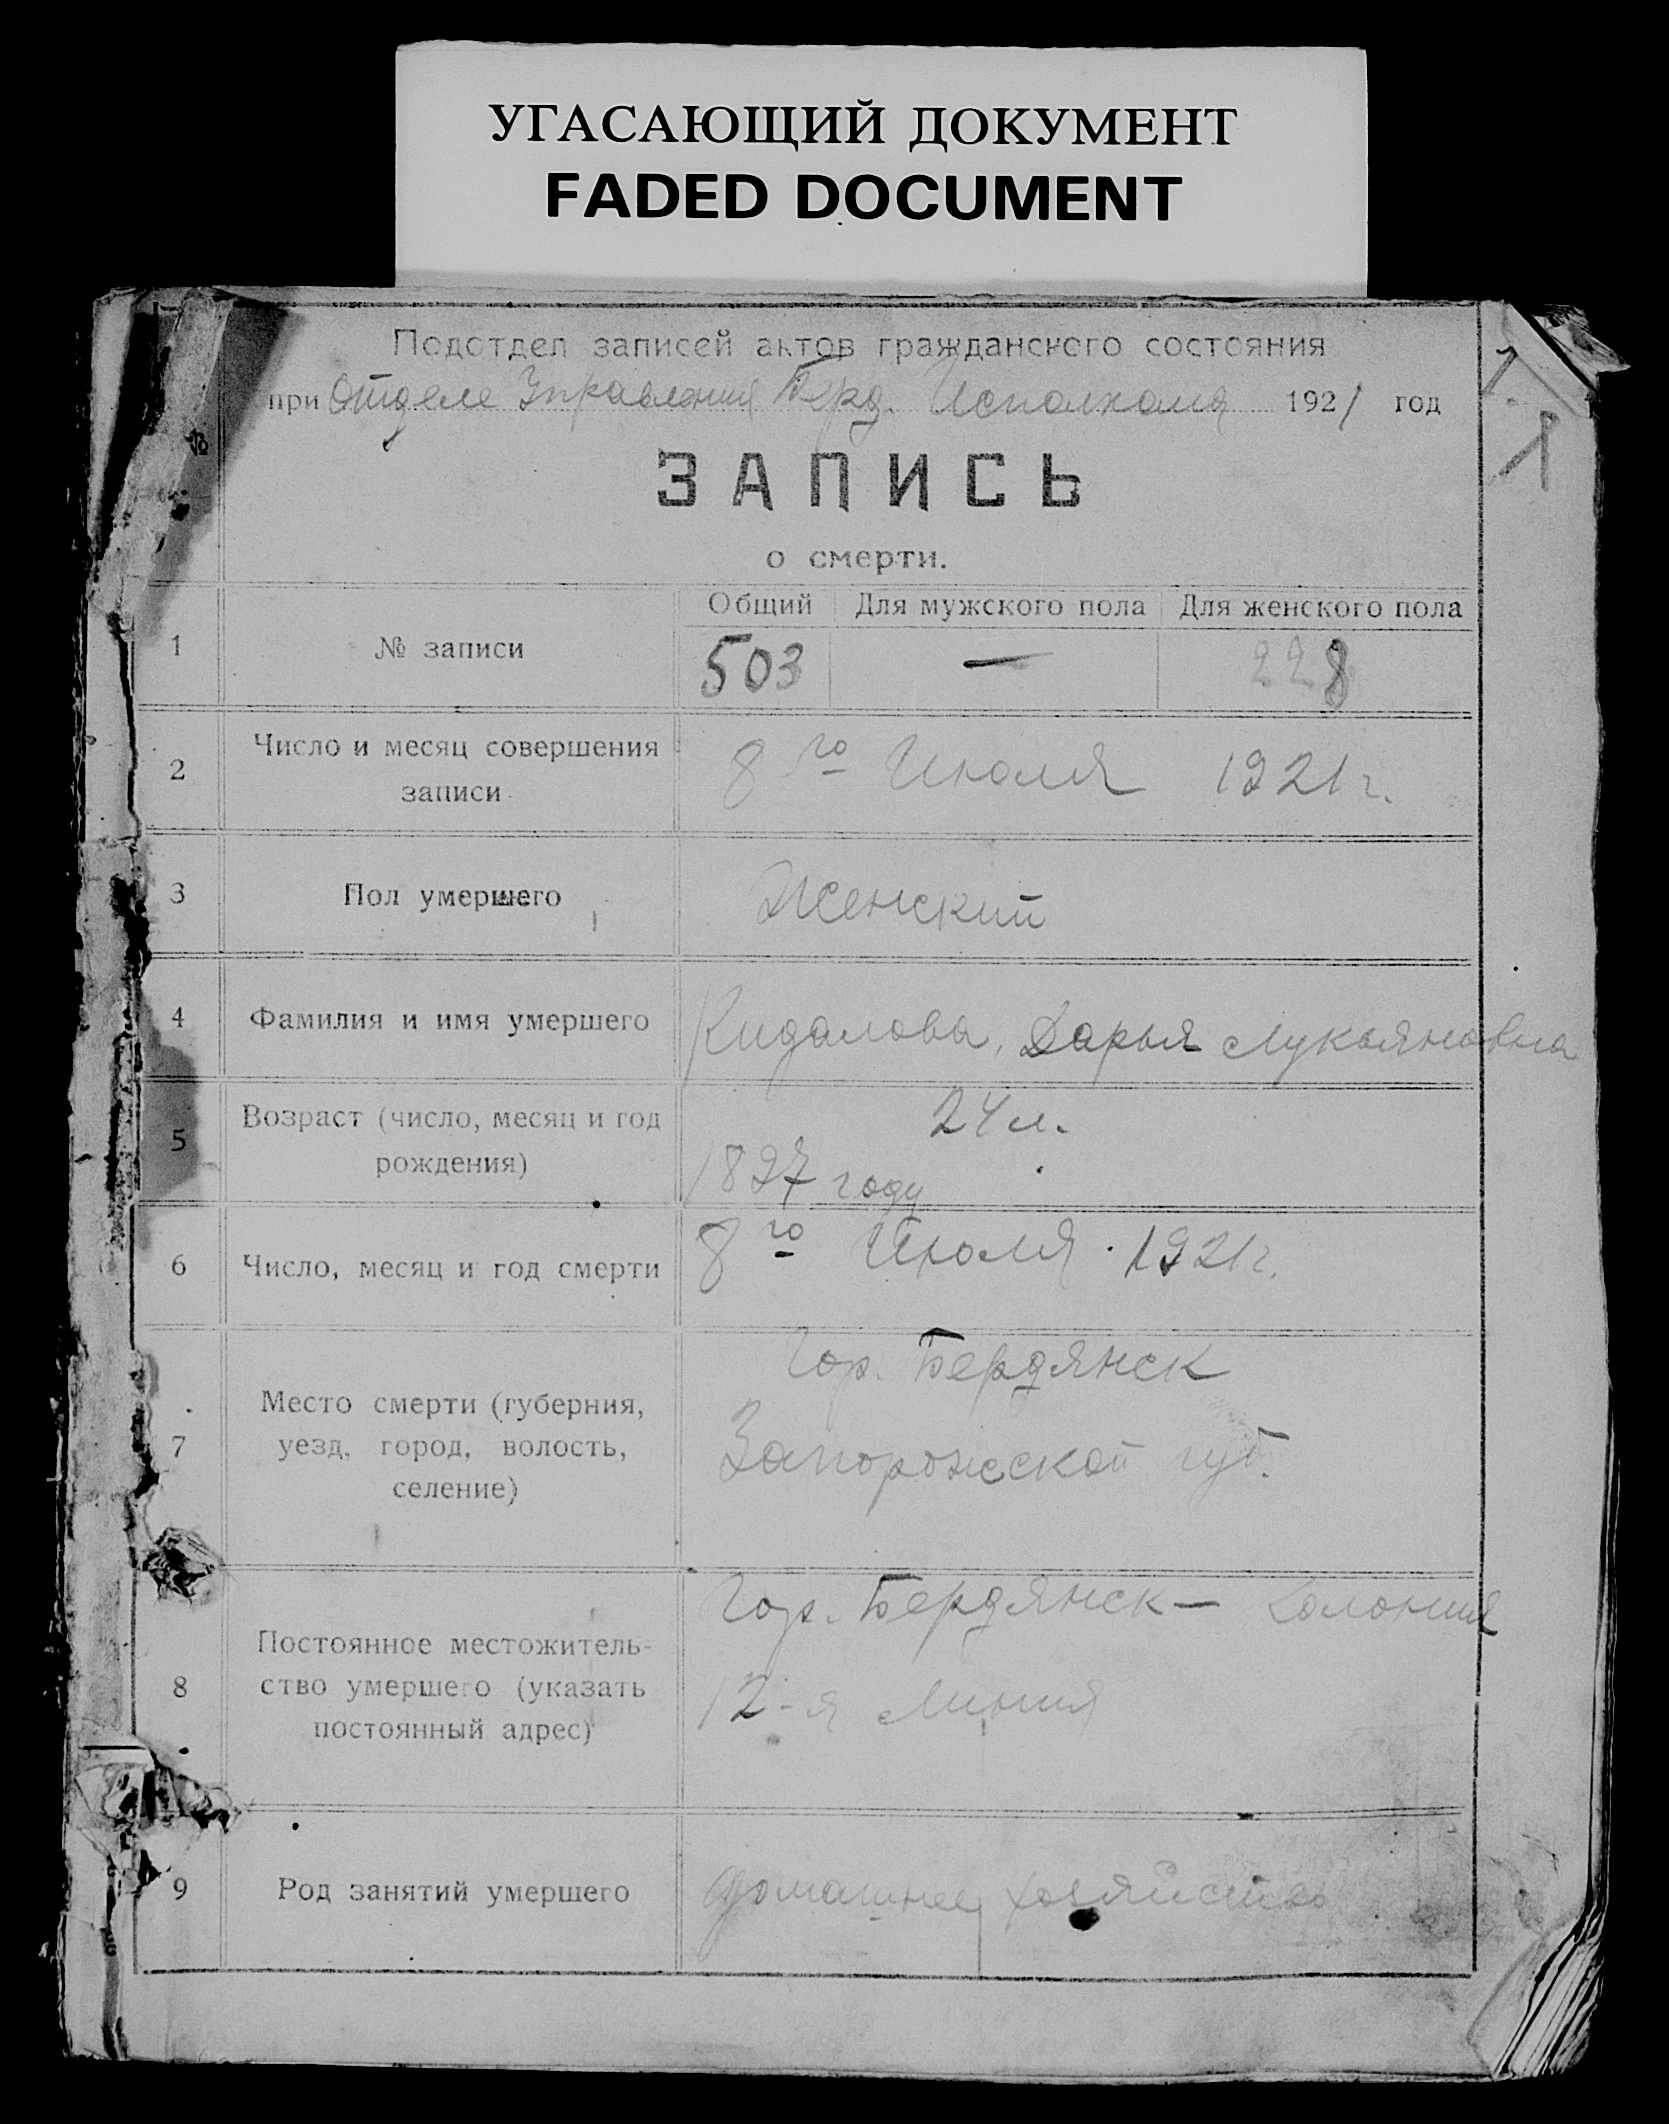 УГАСАЮЩИЙ ДОКУМЕНТ
FADED DOCUMENT
Подотдел записей актов гражданского состояния
при Отделе Управления Берд. Исполкома 1921 год
№
1
1
ЗАПИСЬ
о смерти.
Общий Для мужского пола Для женского пола
1 № записи 503 — 228
2 Число и месяц совершения записи 8го Июля 1921 г.
3 Пол умершего Женский
4 Фамилия и имя умершего Кидалова, Дарья Лукьяновна
5 Возраст (число, месяц и год рождения) 24 л.
1897 году
6 Число, месяц и год смерти 8го Июля 1921 г.
7 Место смерти (губерния, уезд, город, волость, селение) Гор. Бердянск
Запорожской губ.
8 Постоянное местожитель-
ство умершего (указать
постоянный адрес) Гор. Бердянск — Колония
12-я Линия
9 Род занятий умершего домашнее хозяйство